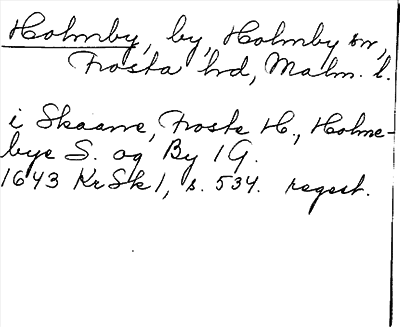 Holmby, by, Holmby sn,
Frosta hrd, Malm. l.
i Skaane, Froste H., Holme-
bye S. og By 1 G.
1643 KrSk 1, s. 534. regest.